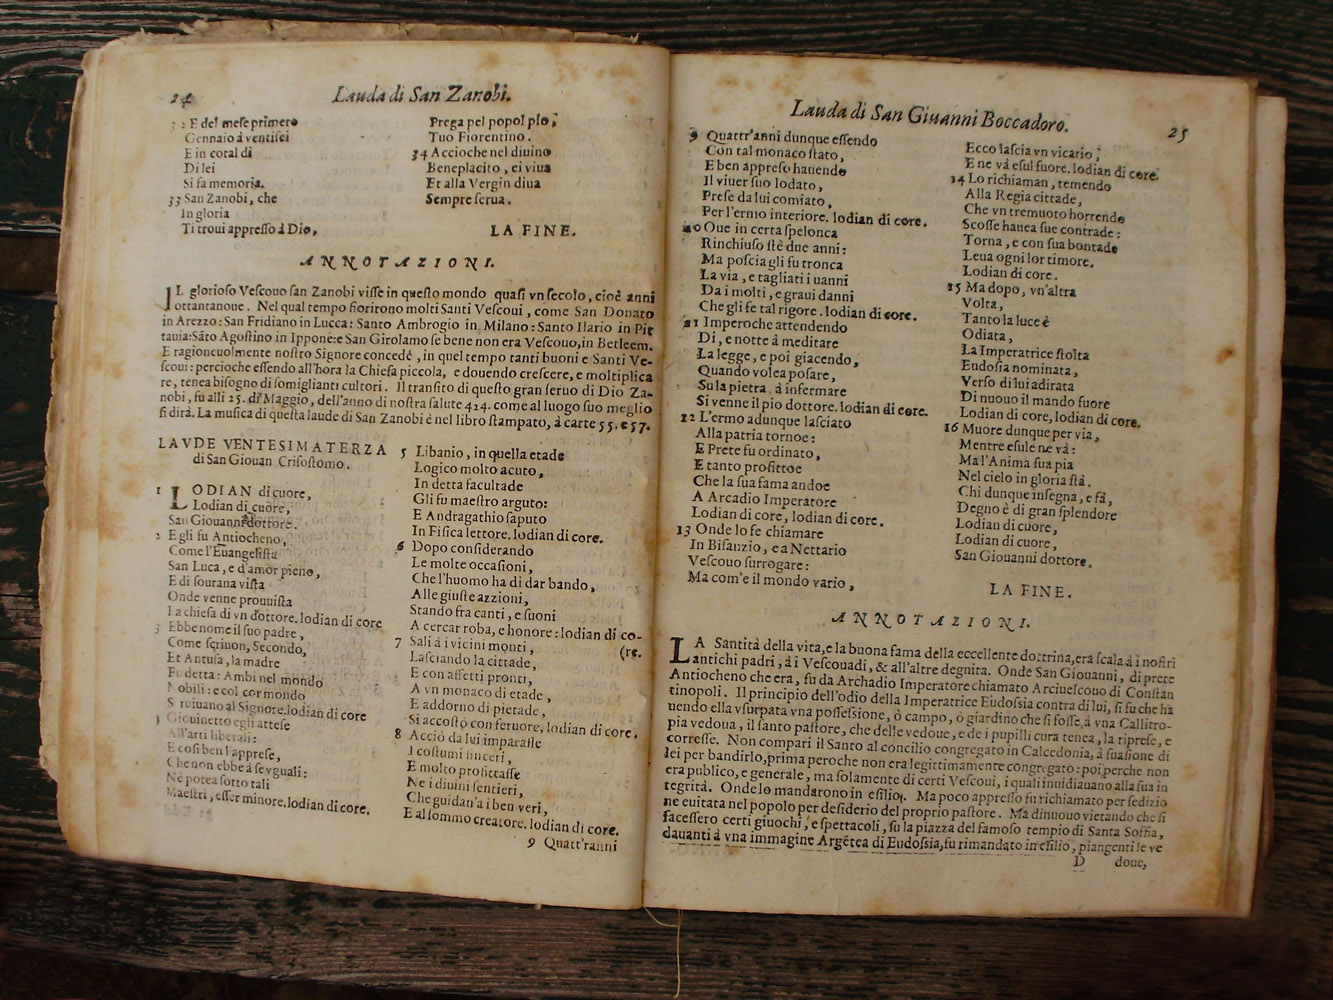 24
Lauda di San Zanobi.
32 E del mese primero
Gennaio à ventisei
E in cotal dì
Di lei
Si fa memoria.
33 San Zanobi, che
In gloria
Ti troui appresso à Dio,
Prega pel popol pio,
Tuo Fiorentino.
34 Accioche nel diuino
Beneplacito, ei viua
Et alla Vergin diua
Sempre serua.
LA FINE.
ANNOTAZIONI.
IL glorioso Vescouo san Zanobi visse in questo mondo quasi vn secolo, cioè anni
ottantanoue. Nel qual tempo fiorirono molti Santi Vescoui, come San Donato
in Arezzo: San Fridiano in Lucca: Santo Ambrogio in Milano: Santo Ilario in Pit
tauia: Sāto Agostino in Ippone: e San Girolamo se bene non era Vescouo, in Betleem.
E ragioneuolmente nostro Signore concedé, in quel tempo tanti buoni e Santi Ve-
scoui: percioche essendo all'hora la Chiesa piccola, e douendo crescere, e moltiplica
re, tenea bisogno di somiglianti cultori. Il transito di questo gran seruo di Dio Za-
nobi, fu alli 25. di Maggio, dell'anno di nostra salute 424. come al luogo suo meglio
si dirà. La musica di questa laude di San Zanobi è nel libro stampato, à carte 55. e 57.
LAVDE VENTESIMATERZA
di San Giouan Crisostomo.
1 LODIAN di cuore,
Lodian di cuore,
San Giouanni dottore.
2 Egli fu Antiocheno,
Come l'Euangelista
San Luca, e d'amor pieno,
E di sourana vista
Onde venne prouuista
La chiesa di vn dottore. lodian di core
3 Ebbe nome il suo padre,
Come scriuon, Secondo,
Et Antusa, la madre
Fu detta: Ambi nel mondo
Nobili: e col cor mondo
Seruiuano al Signore. lodian di core
4 Giouinetto egli attese
All'arti liberali:
E così ben l'apprese,
Che non ebbe à se vguali:
Nè potea sotto tali
Maestri, esser minore. lodian di core.
5 Libanio, in quella etade
Logico molto acuto,
In detta facultade
Gli fu maestro arguto:
E Andragathio saputo
In Fisica lettore. lodian di core.
6 Dopo considerando
Le molte occasioni,
Che l'huomo ha di dar bando,
Alle giuste azzioni,
Stando fra canti, e suoni
A cercar roba, e honore: lodian di co-
(re.
7 Salì à i vicini monti,
Lasciando la cittade,
E con affetti pronti,
A vn monaco di etade,
E addorno di pietade,
Si accostò con feruore, lodian di core.
8 Acciò da lui imparasse
I costumi sinceri,
E molto profittasse
Ne i diuini sentieri,
Che guidan'a i ben veri,
E al sommo creatore. lodian di core.
9 Quatt'ranni
Lauda di San Giuanni Boccadoro.
25
9 Quattr'anni dunque essendo
Con tal monaco stato,
E ben appreso hauendo
Il viuer suo lodato,
Prese da lui comiato,
Per l'ermo interiore. lodian di core.
10 Oue in certa spelonca
Rinchiuso stè due anni:
Ma poscia gli fu tronca
La via, e tagliati i uanni
Da i molti, e graui danni
Che gli fe tal rigore. lodian di core.
11 Imperoche attendendo
Dì, e notte à meditare
La legge, e poi giacendo,
Quando volea posare,
Su la pietra à infermare
Si venne il pio dottore. lodian di core.
12 L'ermo adunque lasciato
Alla patria tornoe:
E Prete fu ordinato,
E tanto profittoe
Che la sua fama andoe
A Arcadio Imperatore
Lodian di core, lodian di core.
13 Onde lo fe chiamare
In Bisanzio, e a Nettario
Vescouo surrogare:
Ma com'è il mondo vario,
Ecco lascia vn vicario,
E ne và esul fuore. lodian di core.
14 Lo richiaman, temendo
Alla Regia cittade,
Che vn tremuoto horrendo
Scosse hauea sue contrade:
Torna, e con sua bontade
Leua ogni lor timore.
Lodian di core.
15 Ma dopo, vn'altra
Volta,
Tanto la luce è
Odiata,
La Imperatrice stolta
Eudosia nominata,
Verso di lui adirata
Di nuouo il mando fuore
Lodian di core, lodian di core.
16 Muore dunque per via,
Mentre esule ne và:
Ma l'Anima sua pia
Nel cielo in gloria stà.
Chi dunque insegna, e fà,
Degno è di gran splendore
Lodian di cuore,
Lodian di cuore,
San Giouanni dottore.
LA FINE.
ANNOTAZIONI.
LA Santità della vita, e la buona fama della eccellente dottrina, era scala à i nostri
antichi padri, à i Vescouadi, & all'altre degnita. Onde San Giouanni, di prete
Antiocheno che era, fu da Archadio Imperatore chiamato Arciuescouo di Constan
tinopoli. Il principio dell'odio della Imperatrice Eudossia contra di lui, si fu che ha
uendo ella vsurpata vna possessione, ò campo, ò giardino che si fosse à vna Callitro-
pia vedoua, il santo pastore, che delle vedoue, e de i pupilli cura tenea, la riprese, e
corresse. Non compari il Santo al concilio congregato in Calcedonia, à suasione di
lei per bandirlo, prima peroche non era legittimamente congregato: poi perche non
era publico, e generale, ma solamente di certi Vescoui, i quali inuidiauano alla sua in
tegrità. Onde lo mandarono in esilio. Ma poco appresso fu richiamato per sedizio
ne euitata nel popolo per desiderio del proprio pastore. Ma dinuouo vietando che si
facessero certi giuochi, e spettacoli, su la piazza del famoso tempio di Santa Soffia,
dauanti à vna immagine Argētea di Eudossia, fu rimandato in esilio, piangenti le ve
D
doue,